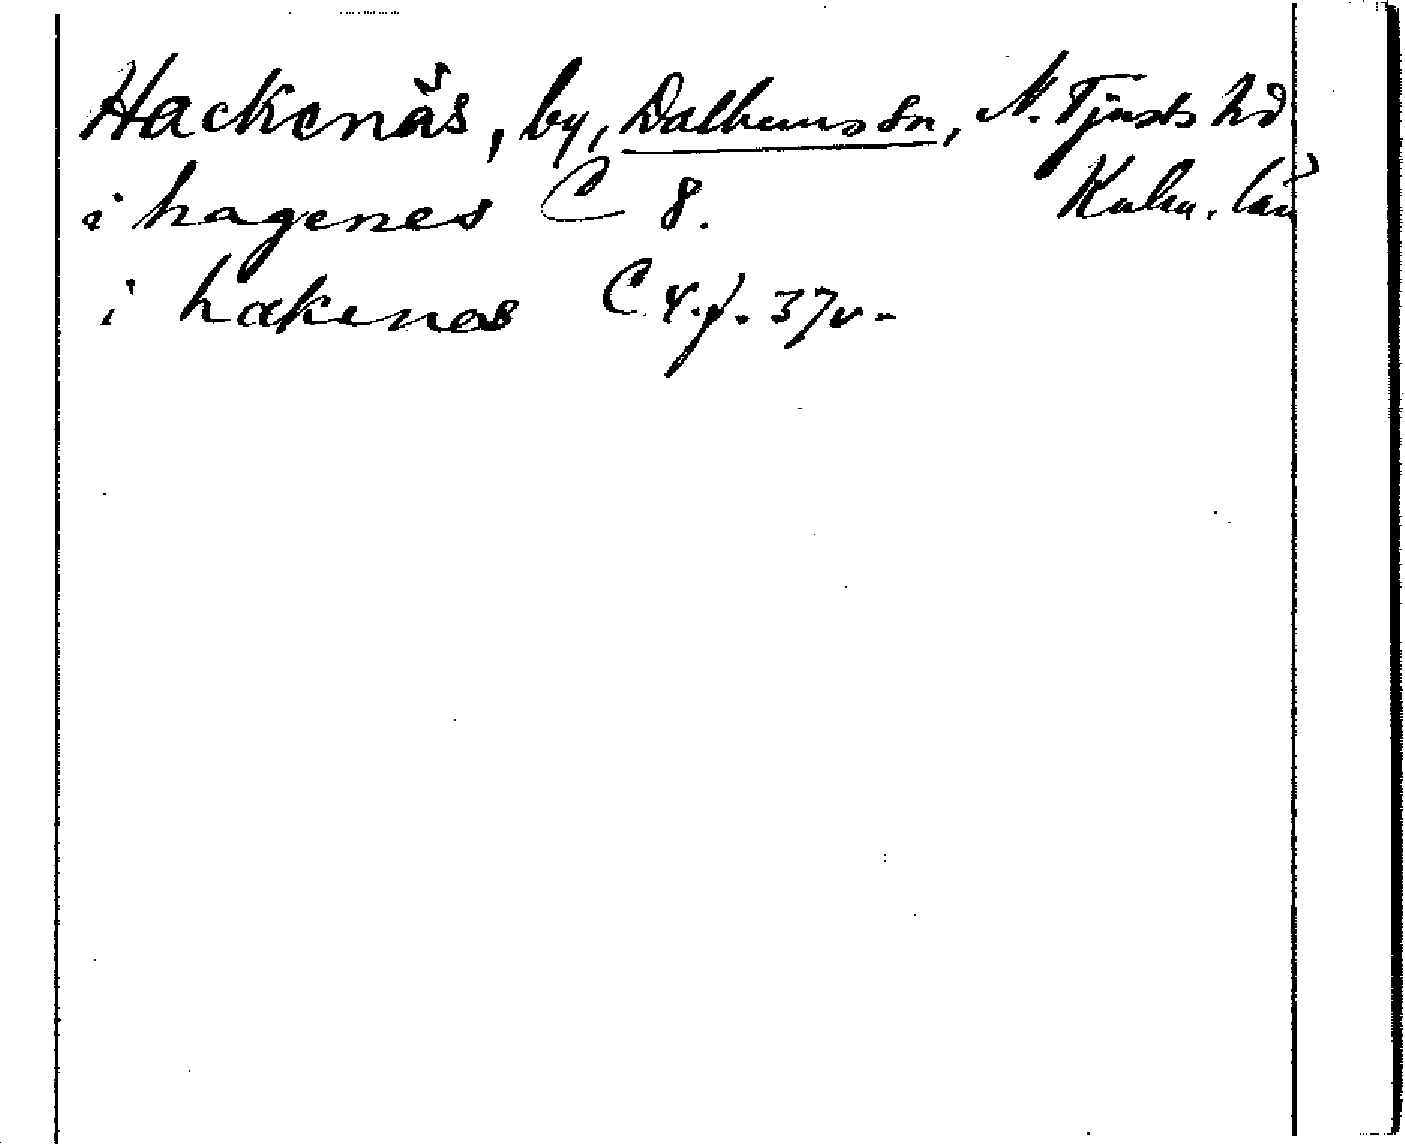 Hackenäs, by, Dalhems sn, N. Tjusts hd
Kalm. län
i hagenes C 8.
i hakenæs C 4. f. 37v.